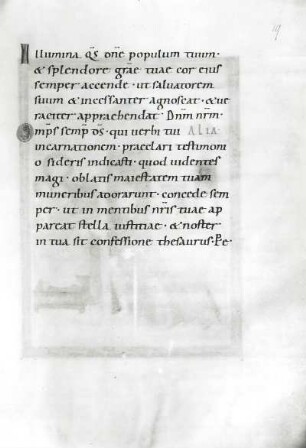 19
Illumina qs̄ om̄e populum tuum·
& splendore gr̄ae tuae cor eius
semper accende· ut saluatorem
suum & incessanter agnoscat· & ue
raciter apprehendat· P dn̄m nr̄m·
Omp̄s semp̄ d̄s· qui uerbi tui ALIA
incarnationem· praeclari testimoni
o sideris indicasti· quod uidentes
magi· oblatis maiestatem tuam
muneribus adorarunt· concede sem
per· ut in mentibus nr̄is tuae ap
pareat stella iustitiae· & noster
in tua sit confessione thesaurus· Pe·